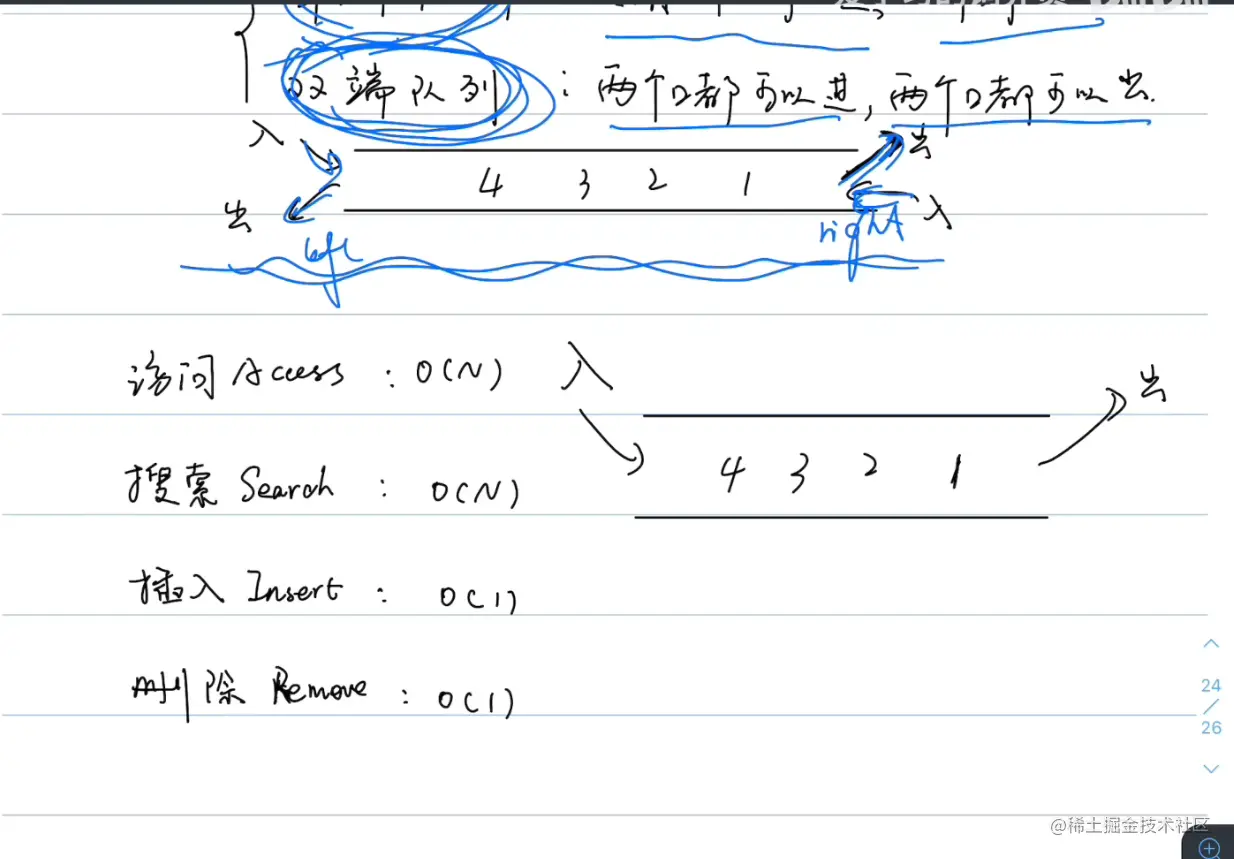 双端队列 : 两个口都可以进, 两个口都可以出.
入 出
4 3 2 1
出 入
left right
访问 Access : O(N) 入 出
4 3 2 1
搜索 Search : O(N)
插入 Insert : O(1)
删除 Remove : O(1)
24
/
26
@稀土掘金技术社区